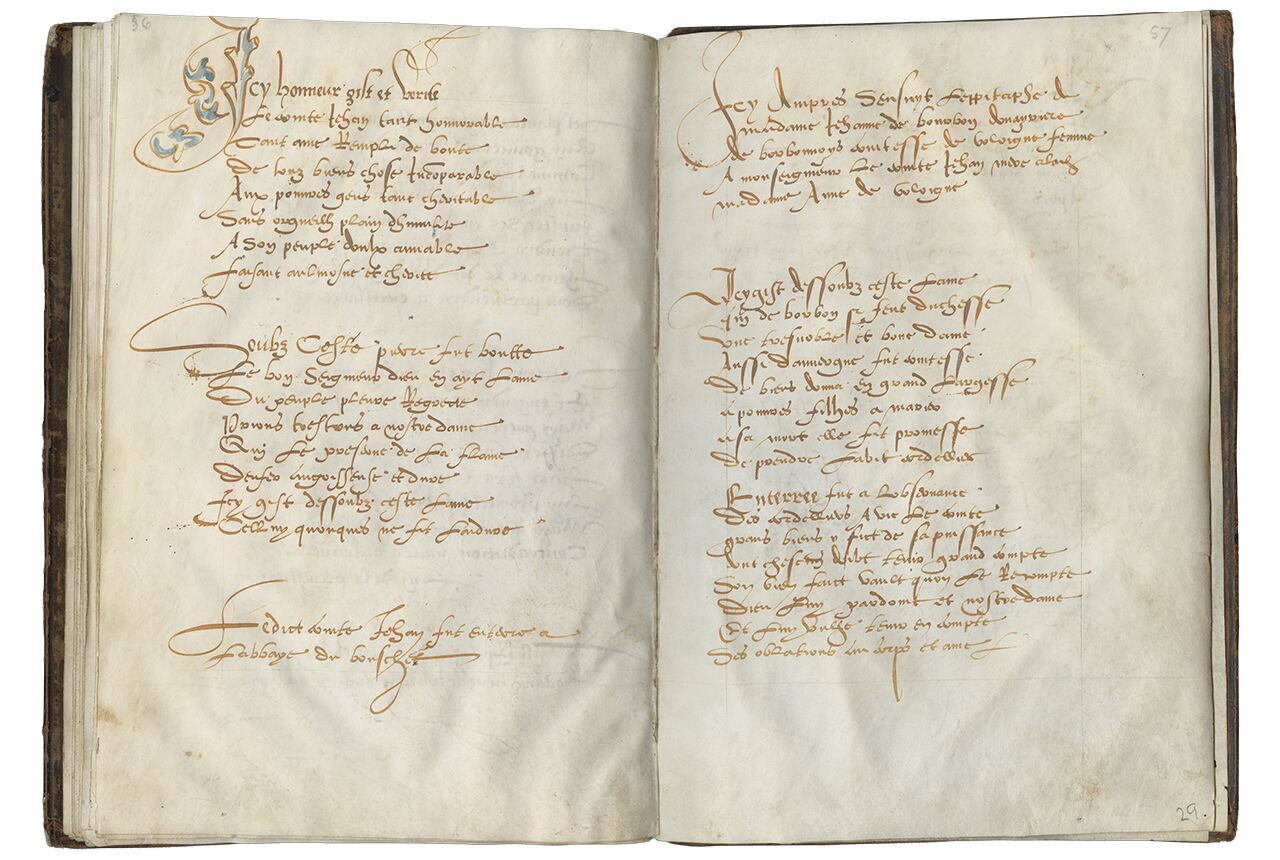 56
Icy honneur gist et verite
Le comte Jehan tant honnorable
Tant ame Remply de bonte
De touz biens chose Incoparable
Aux pouvres gens tant cheritable
Sans orgueilh plain dhumilite
A Son peuple doulx amiable
faisant aulmosne et cherite
Soubz Ceste pierre fut boutte
Le bon Seigneur dieu en ait Lame
Du peuple pleure Regrete
Prions trestous a nostre dame
Qui Le preserve de La flame
Denfer angoisseuse et dure
Icy gist dessoubz ceste Lame
Celluy quonques ne fit Laidure
Ledict comte Jehan fut enterre a
Labbaye du bouschet
57
Icy Aupres Sensuyt Leppitaphe de
madame Jehanne de bourbon douayriere
de bourbonnoys comtesse de voloigne femme
A monseigneur Le comte Jehan mere a lad
madame Anne de voloigne
Icy gist dessoubz ceste Lame
qui de borbon se feut duchesse
Une tresnoble et bone dame
Aussi dauvergne fut comtesse
De biens donna en grand Largesse
a pouvres filhes a marier
a sa mort elle fit promesse
de prendre Labit cordellier
Enterree fut a Lobservance
Des cordelliers A vic Le comte
grans biens y fict de sa puissance
Dont chescun doibt tenir grand compte
Son bien fait vault quon Le Racompte
Dieu Luy pardoint et nostre dame
Et Luy vulhe tenir en compte
Ses oblations au corps et ame
29.